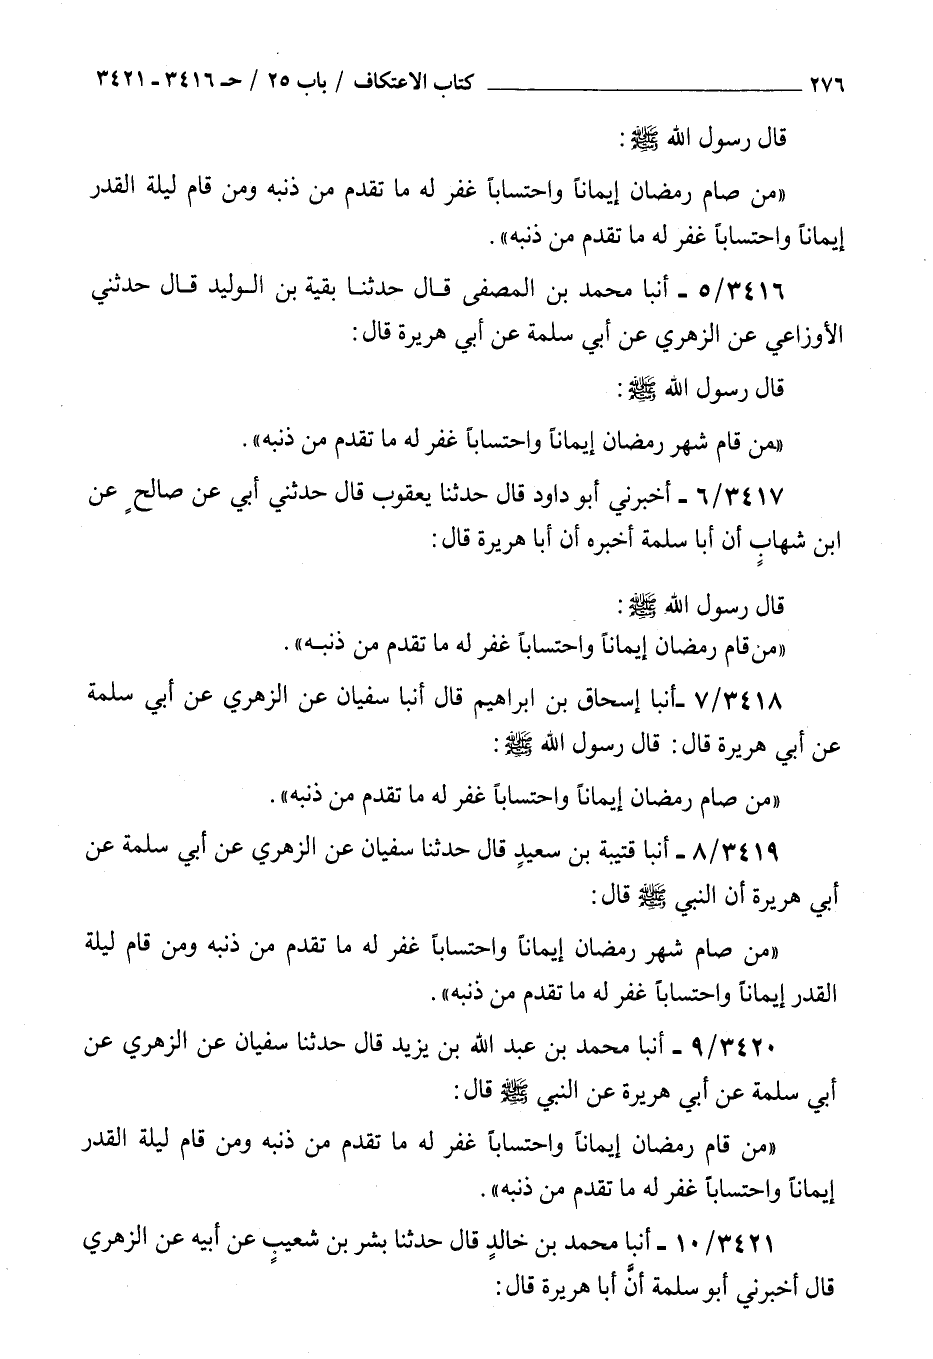 ٢٧٦ ــــــــــــ كتاب الاعتكاف / باب ٢٥ / حـ ٣٤١٦ ـ ٣٤٢١
قال رسول الله ﷺ :
«من صام رمضان إيماناً واحتساباً غفر له ما تقدم من ذنبه ومن قام ليلة القدر
إيماناً واحتساباً غفر له ما تقدم من ذنبه» .
٥/٣٤١٦ ـ أنبا محمد بن المصفى قـال حدثنـا بقية بن الـوليد قـال حدثني
الأوزاعي عن الزهري عن أبي سلمة عن أبي هريرة قال :
قال رسول الله ﷺ :
«من قام شهر رمضان إيماناً واحتساباً غفر له ما تقدم من ذنبه» .
٦/٣٤١٧ ـ أخبرني أبو داود قال حدثنا يعقوب قال حدثني أبي عن صالحٍ عن
ابن شهابٍ أن أبا سلمة أخبره أن أبا هريرة قال :
قال رسول الله ﷺ :
«من قام رمضان إيماناً واحتساباً غفر له ما تقدم من ذنبـه» .
٧/٣٤١٨ ـأنبا إسحاق بن ابراهيم قال أنبا سفيان عن الزهري عن أبي سلمة
عن أبي هريرة قال : قال رسول الله ﷺ :
«من صام رمضان إيماناً واحتساباً غفر له ما تقدم من ذنبه» .
٨/٣٤١٩ ـ أنبا قتيبة بن سعيدٍ قال حدثنا سفيان عن الزهري عن أبي سلمة عن
أبي هريرة أن النبي ﷺ قال :
«من صام شهر رمضان إيماناً واحتساباً غفر له ما تقدم من ذنبه ومن قام ليلة
القدر إيماناً واحتساباً غفر له ما تقدم من ذنبه» .
٩/٣٤٢٠ ـ أنبا محمد بن عبد الله بن يزيد قال حدثنا سفيان عن الزهري عن
أبي سلمة عن أبي هريرة عن النبي ﷺ قال :
«من قام رمضان إيماناً واحتساباً غفر له ما تقدم من ذنبه ومن قام ليلة القدر
إيماناً واحتساباً غفر له ما تقدم من ذنبه» .
١٠/٣٤٢١ ـ أنبا محمد بن خالدٍ قال حدثنا بشر بن شعيبٍ عن أبيه عن الزهري
قال أخبرني أبو سلمة أنَّ أبا هريرة قال :